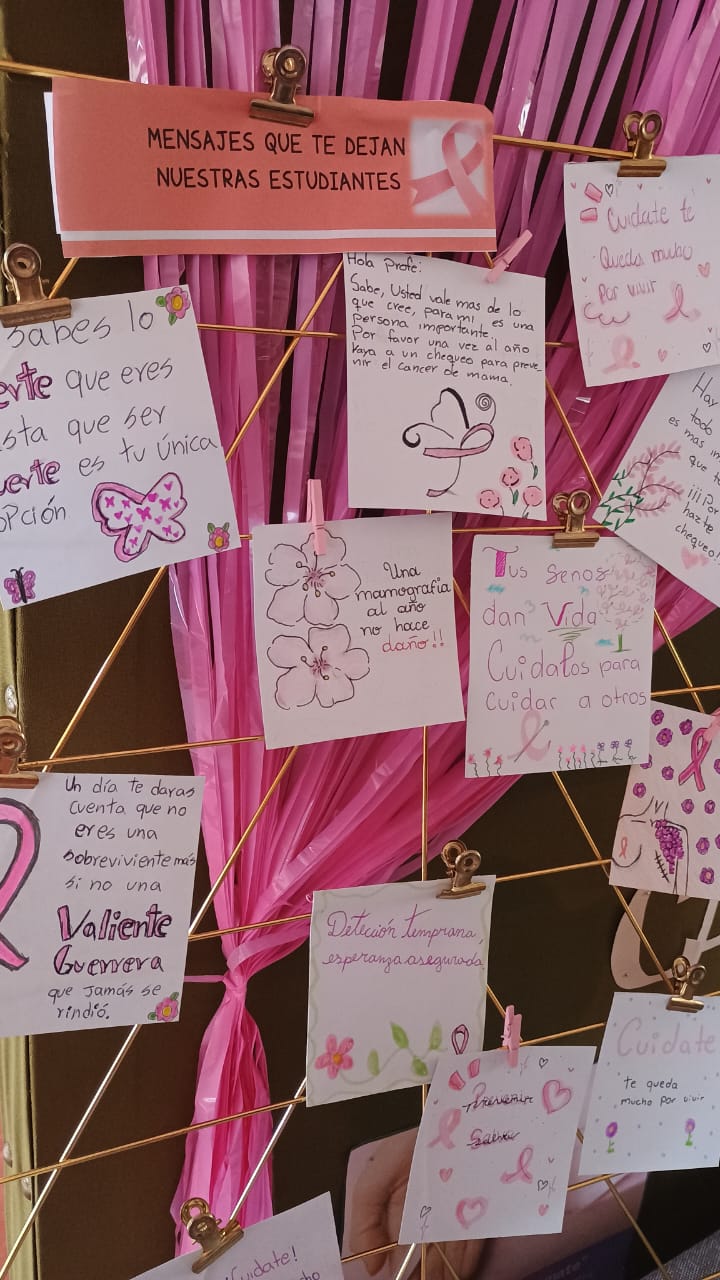 MENSAJES QUE TE DEJAN
NUESTRAS ESTUDIANTES
Cuidate te
Queda mucho
Por vivir
Hola Profe:
Sabe, Usted vale mas de lo
que cree, para mi es una
persona importante.
Por favor una vez al año
vaya a un chequeo para preve-
nir el cancer de mama.
sabes lo
erte que eres
sta que ser
uerte es tu única
opción
Hay
todo
es mas im
que t
¡¡¡Por
hazte
chequeo!!
Una
mamografia
al año
no hace
daño!!
Tus senos
dan Vida
Cuidalos para
cuidar a otros
Un día te daras
cuenta que no
eres una
sobreviviente más
si no una
Valiente
Guerrera
que jamás se
rindió.
Detección temprana,
esperanza asegurada
Prevenir
Salva
Cuidate
te queda
mucho por vivir
Cuidate!
cho